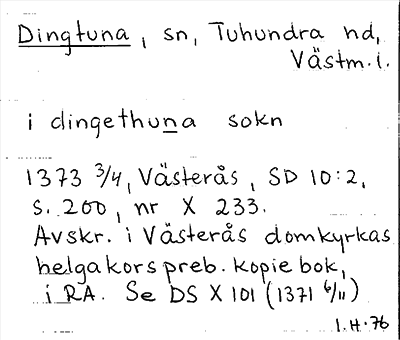 Dingtuna, sn, Tuhundra hd,
Västm. l.
i dingethuna sokn
1373 3/4, Västerås, SD 10:2,
s. 200, nr X 233.
Avskr. i Västerås domkyrkas
helgakorspreb. kopiebok,
i RA. Se DS X 101 (1371 6/11)
I.H. 76